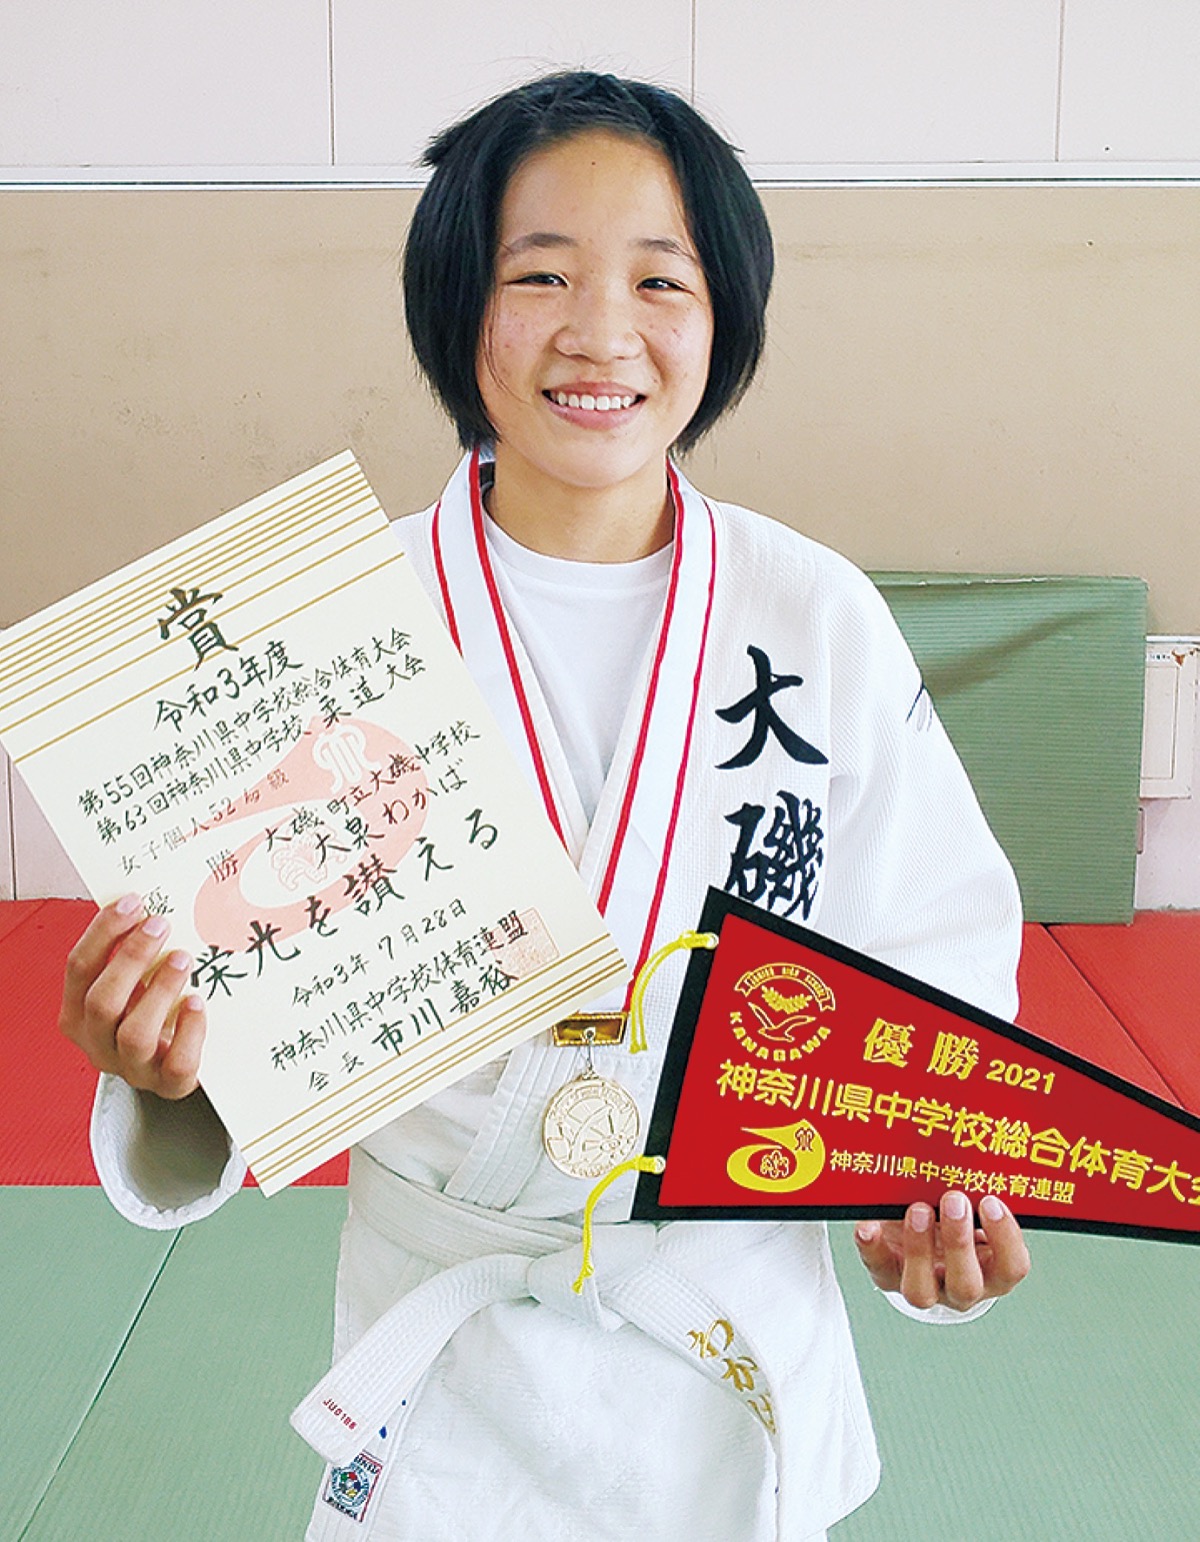 賞
令和3年度
第55回神奈川県中学校総合体育大会
第63回神奈川県中学校 柔道 大会
女子個人52kg級
優勝 大磯町立大磯中学校
大泉わかば
栄光を讃える
令和3年7月28日
神奈川県中学校体育連盟
会長 市川嘉裕
大磯
KANAGAWA
優勝 2021
神奈川県中学校総合体育大会
神奈川県中学校体育連盟
わかば